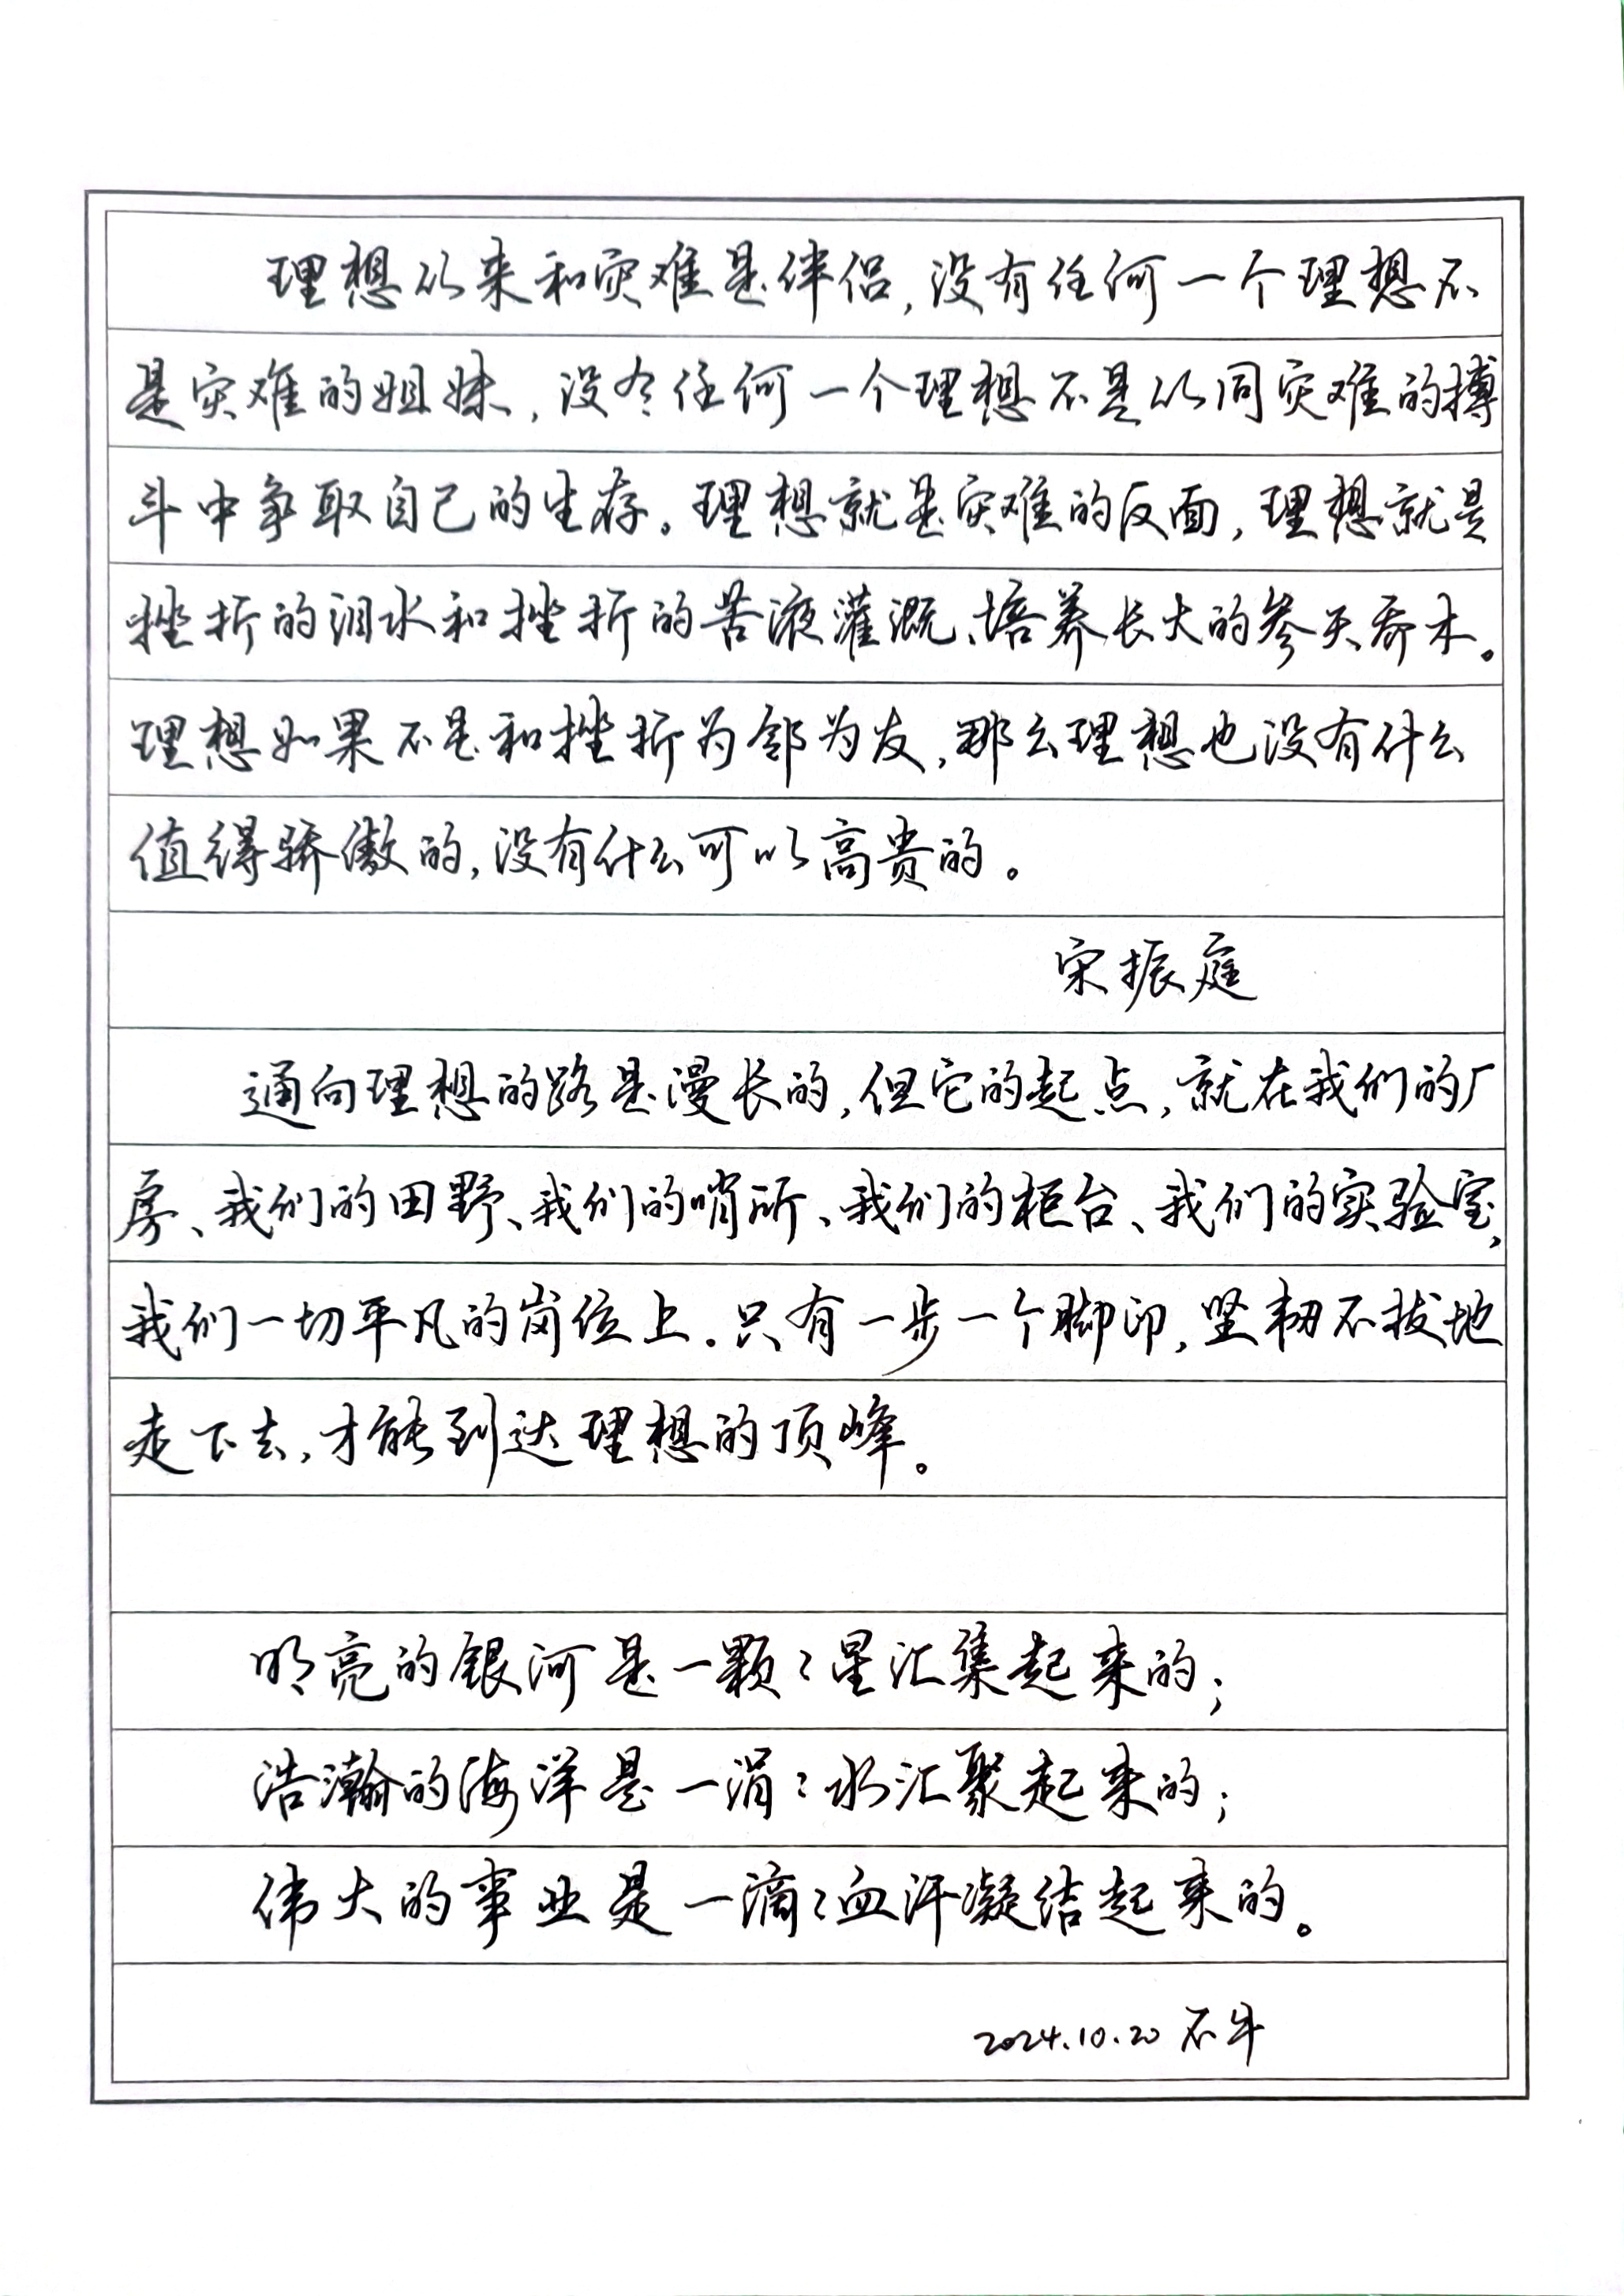 理想以来和灾难是伴侣,没有任何一个理想不
是灾难的姐妹,没有任何一个理想不是以同灾难的搏
斗中争取自己的生存。理想就是灾难的反面,理想就是
挫折的泪水和挫折的苦液灌溉、培养长大的参天乔木。
理想如果不是和挫折为邻为友,那么理想也没有什么
值得骄傲的,没有什么可以高贵的。
宋振庭
通向理想的路是漫长的,但它的起点,就在我们的厂
房、我们的田野、我们的哨所、我们的柜台、我们的实验室,
我们一切平凡的岗位上。只有一步一个脚印,坚韧不拔地
走下去,才能到达理想的顶峰。
明亮的银河是一颗々星汇集起来的;
浩瀚的海洋是一涓々水汇聚起来的;
伟大的事业是一滴々血汗凝结起来的。
2024.10.20 石牛